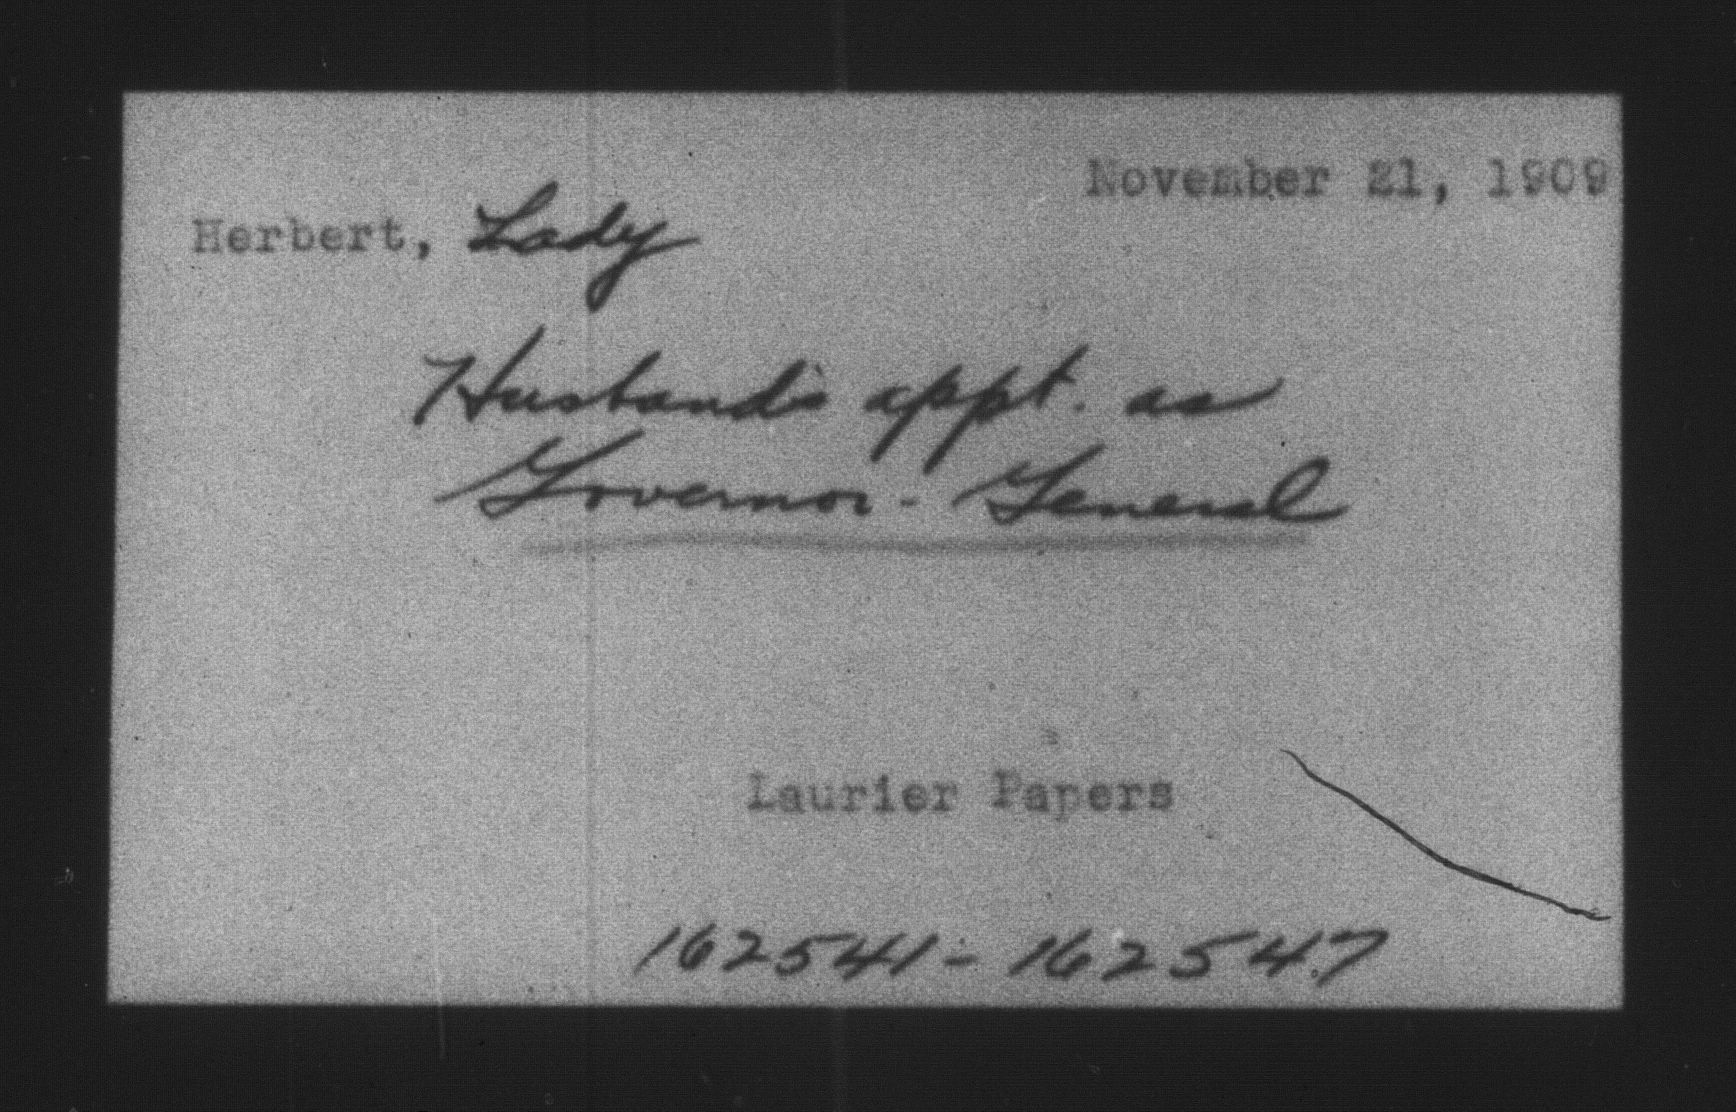 November 21, 1909
Herbert, Lady
Husband's appt. as
Governor-General
Laurier Papers
162541-162547